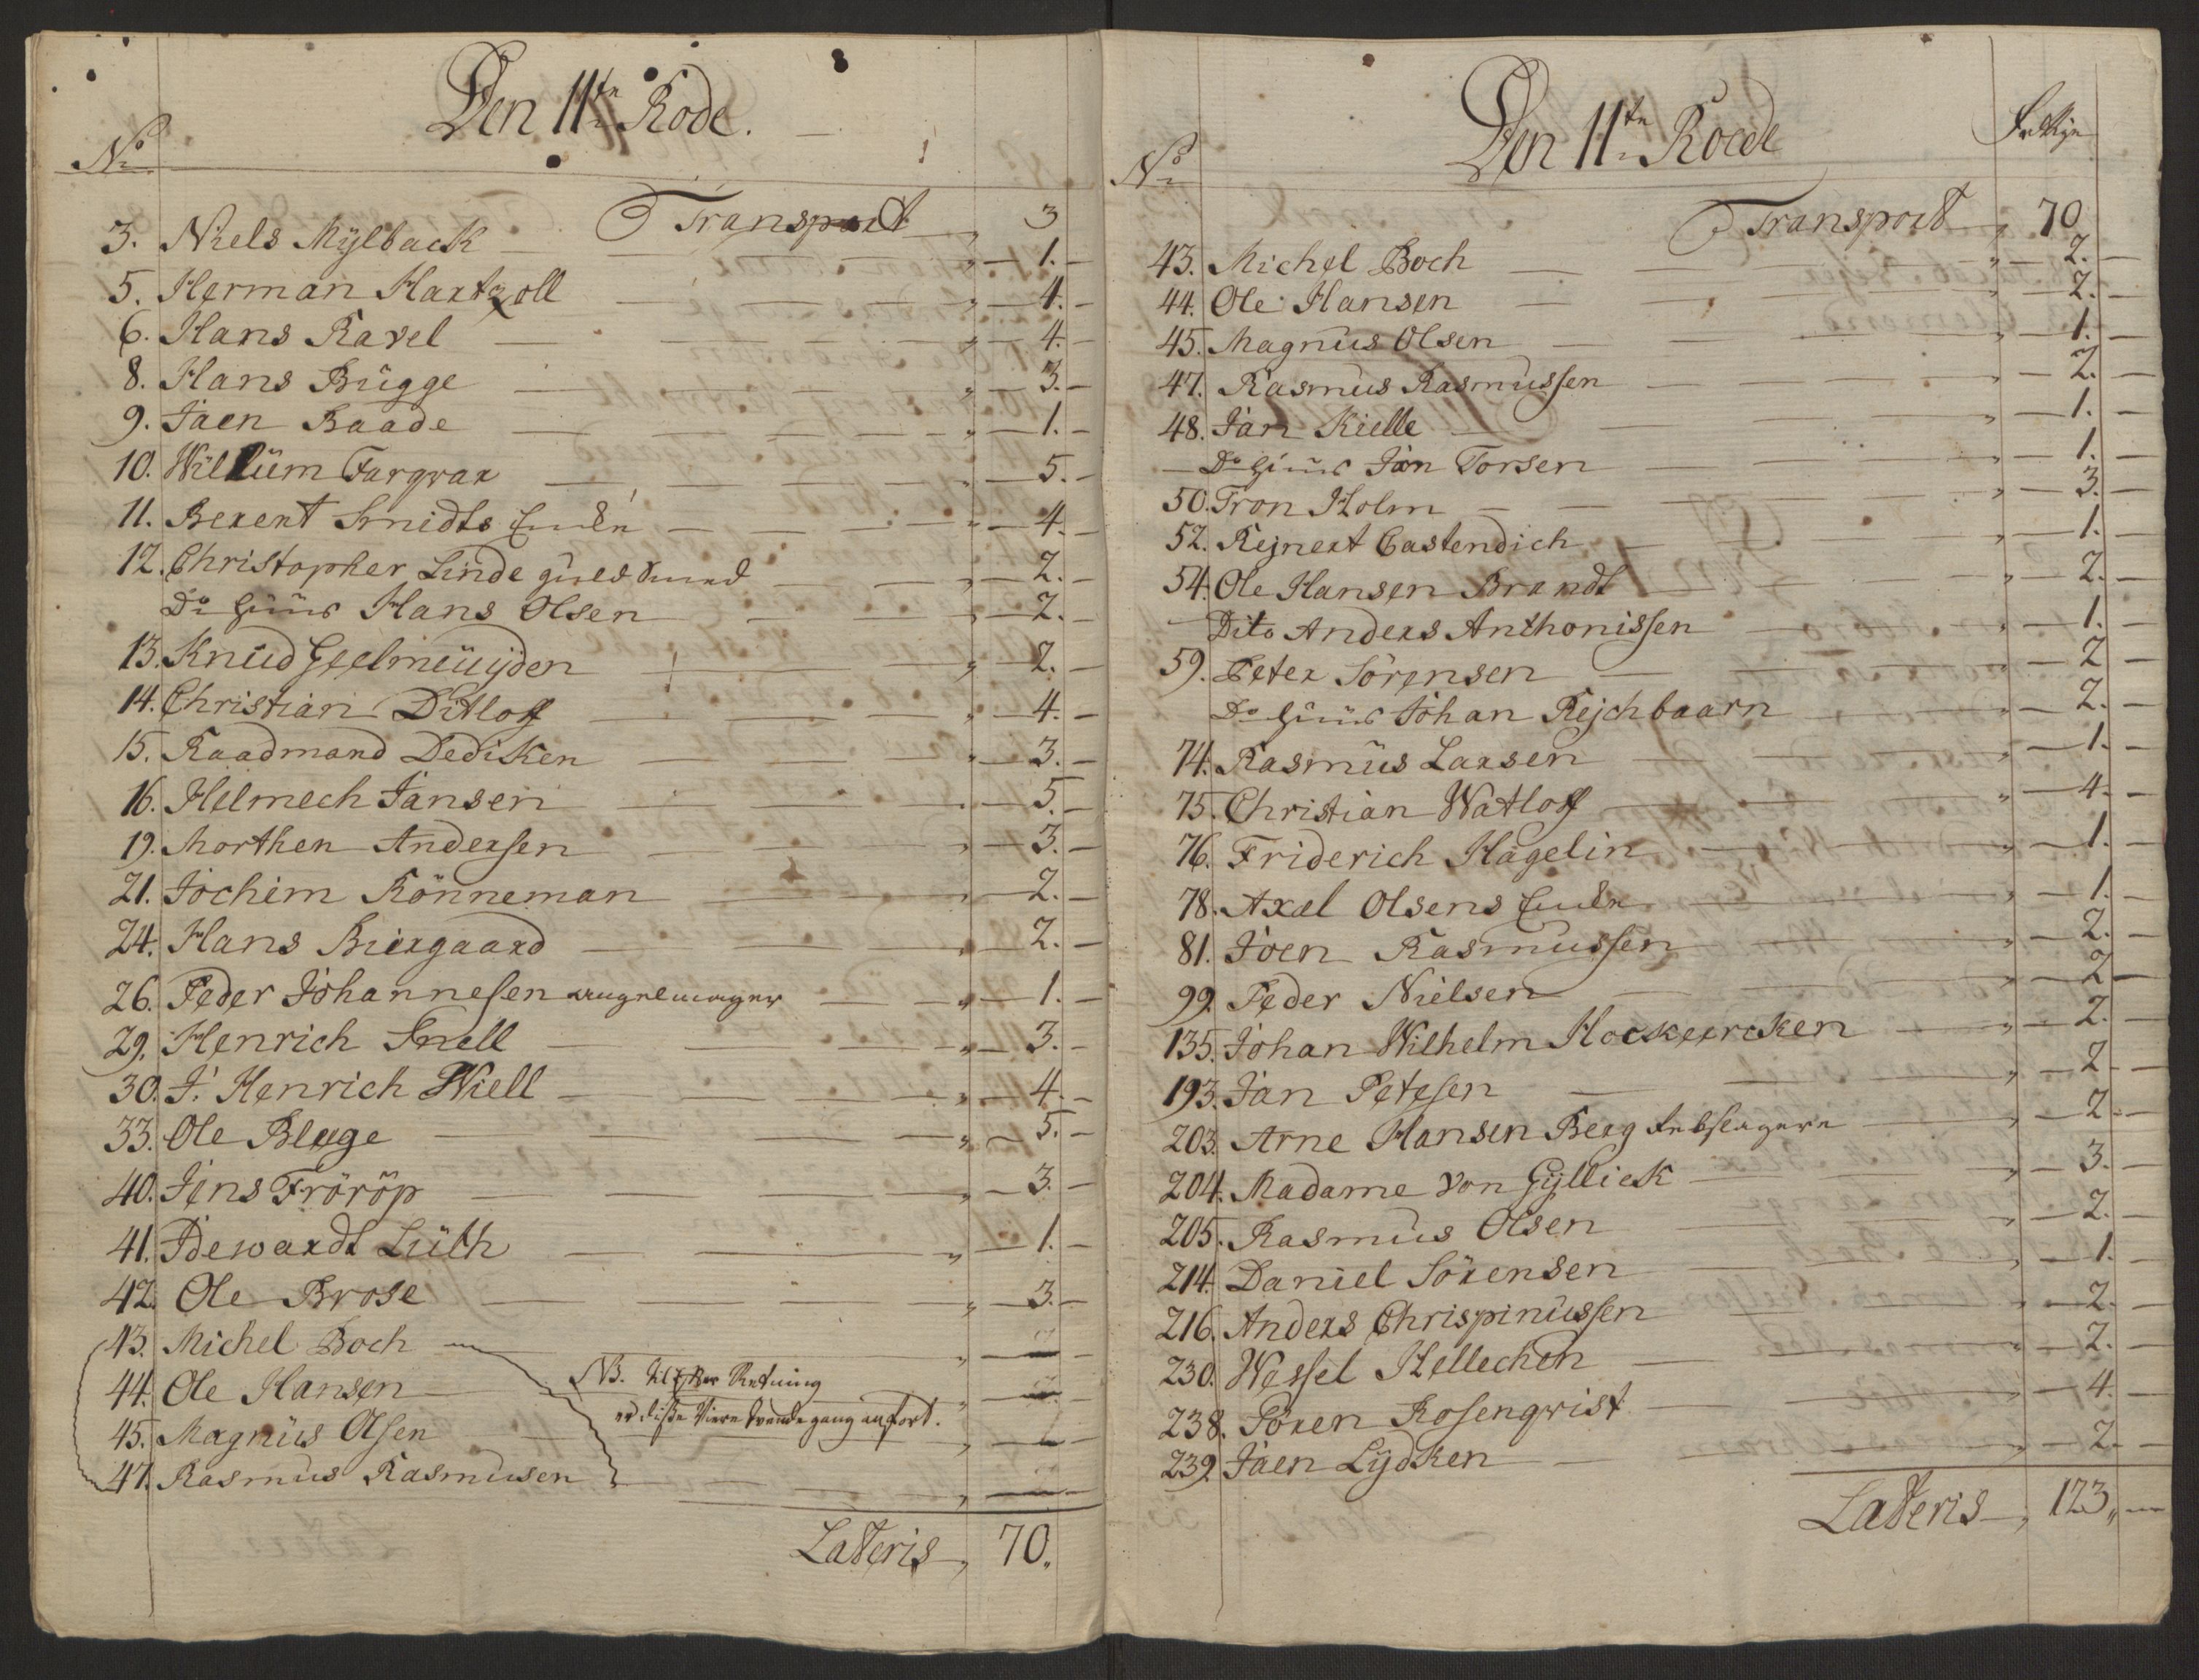 Den 11te Rode.
No
Transport 3
3. Niels Mÿlback 1.
5. Herman Hartzoll 4.
6. Hans Ravel 4.
8. Hans Brügge 3.
9. Jaen Baade 1.
10. Willüm Fargrar 5.
11. Berent Smidts Encke 4.
12. Christopher Linde 2.
Do Huus Hans Olsen 2.
13. Knud Geelmeüÿden 2.
14. Christian Ditlof 4.
15. Raadmand Dediken 3.
16. Helmech Jansen 5.
19. Morthen Andersen 3.
21. Jochim Rönneman 2.
24. Hans Biergaard 2.
26. Peder Johannesen 1.
29. Henrich Snell 3.
30. J. Henrich Wiell 4.
33. Ole Bluge 5.
40. Jens Fröröp 3.
41. Idewardt Lüth 1.
42. Ole Brose 3.
43. Michel Boch
44. Ole Hansen
45. Magnüs Olsen
47. Rasmus Rasmusen
NB. Retning
er disse Viere tvende gang anfort.
Lateris 70.
Den 11te Roede
No
Transport 70
43. Michel Boch 2.
44. Ole Hansen 2.
45. Magnüs Olsen 1.
47. Rasmus Rasmussen 2.
48. Jan Kielle 1.
Do Huus Jan Torsen 1.
50. Tron Holm 3.
52. Rejnert Castendich 1.
54. Ole Hansen Brandt 2.
Dito Anders Anthonissen 1.
59. Peter Sörensen 2
Do Huus Johan Rejchbaarn 2.
74. Rasmüs Larsen 1.
75. Christian Watlof 4.
76. Friderich Hagelin 1.
78. Axel Olsens Encke 1.
81. Joen Rasmussen 2.
99. Peder Nielsen 2
135. Johan Wilhelm Hockercken 2.
193. Jan Petesen 2
203. Arne Hansen Berg 2.
204. Madame von Gÿllick 3.
205. Rasmus Olsen 2.
214. Daniel Sörensen 1.
216. Anders Chrispinüssen 2.
230. Wessel Hellechen 2.
238. Sören Rosenqvist 4.
239. Jaen Lÿdken 2.
Lateris 123